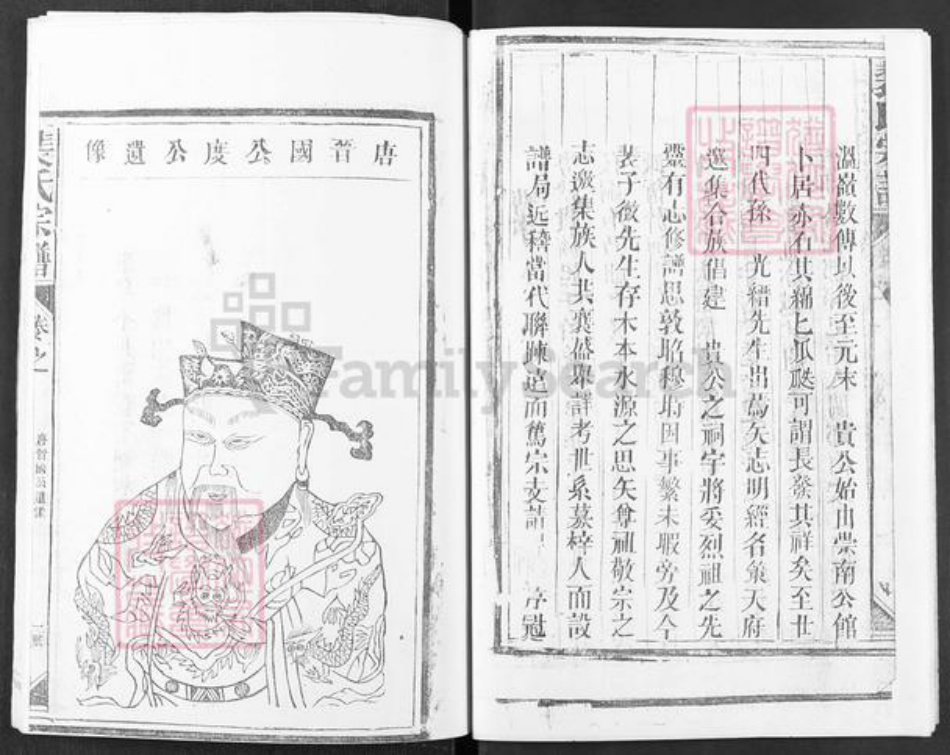 溫嶺數傳以後至元末 貴公始由崇南公館
卜居赤石其綿匕瓜瓞可謂長發其祥矣至廿
四代孫 光縉先生出焉矢志明經名策天府
選集合族倡建 貴公之祠宇將妥烈祖之先
靈有志修譜思敦昭穆 因事繁未暇旁及今
裴子徵先生存木本水源之思矢尊祖敬宗之
志邀集族人共襄盛舉詳考世系慕梓人而設
譜局近稽當代聯疎遠而篤宗支 序冠
唐晉國公度公遺像
裴氏宗譜
卷之
唐晉國公遺像
FamilySearch